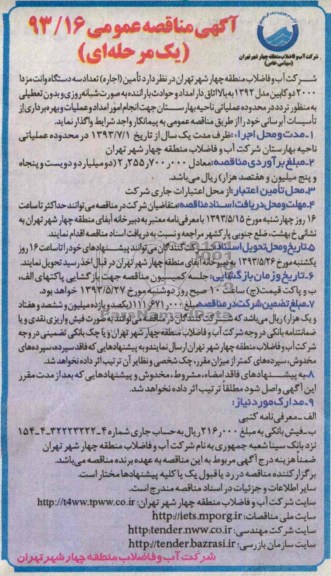 آگهی مناقصه عمومی ۹۳/۱۶
(یک مرحله‌ای)
شرکت آب و فاضلاب منطقه چهار شهر تهران
(سهامی خاص)
شرکت آب و فاضلاب منطقه چهار شهر تهران در نظر دارد تأمین (اجاره) تعداد سه دستگاه وانت مزدا
۲۰۰۰ دو کابین مدل ۱۳۹۲ به بالا
به منظور تردد در محدوده عملیاتی ناحیه بهارستان جهت انجام امور امداد و عملیات و بهره‌برداری از
تأسیسات آبرسانی خود را از طریق مناقصه عمومی به پیمانکار واجد شرایط واگذار نماید.
۱ـ مدت و محل اجرا: ظرف مدت یک سال از تاریخ ۱۳۹۳/۷/۱ در محدوده عملیاتی
ناحیه بهارستان شرکت آب و فاضلاب منطقه چهار شهر تهران
۲ـ مبلغ برآوردی مناقصه: معادل ۲,۲۵۵,۷۰۰,۰۰۰ (دو میلیارد و دویست و پنجاه
و پنج میلیون و هفتصد هزار) ریال می‌باشد.
۳ـ محل تأمین اعتبار: از محل اعتبارات جاری شرکت
۴ـ مهلت و محل دریافت اسناد مناقصه: متقاضیان شرکت در مناقصه می‌توانند حداکثر تا ساعت
۱۶ روز چهارشنبه مورخ ۱۳۹۳/۵/۱۵ با معرفی‌نامه معتبر به دبیرخانه آبفای منطقه چهار شهر تهران به
نشانی خ بهشت، ضلع جنوبی پارک شهر مراجعه و نسبت به دریافت اسناد مناقصه اقدام نمایند.
۵ـ تاریخ و محل تحویل اسناد: شرکت کنندگان می‌توانند پیشنهادهای خود را تا ساعت ۱۶ روز
یکشنبه مورخ ۱۳۹۳/۵/۲۶ به دبیرخانه آبفای منطقه چهار شهر تهران در قبال اخذ رسید تحویل نمایند.
۶ـ تاریخ و زمان بازگشایی: جلسه کمیسیون مناقصه جهت بازگشایی پاکتهای الف،
ب و پاکت قیمت (ج) ساعت ۱۰ صبح روز دوشنبه مورخ ۱۳۹۳/۵/۲۷ خواهد بود.
۷ـ مبلغ تضمین شرکت در مناقصه: مبلغ ۱۱۱,۶۷۱,۰۰۰ (یکصد و یازده میلیون و ششصد و هفتاد
و یک هزار) ریال می‌باشد که
ضمانتنامه بانکی در وجه شرکت آب و فاضلاب منطقه چهار شهر تهران و یا چک بانکی تضمینی در وجه
شرکت آب و فاضلاب منطقه چهار شهر تهران ارسال نمایند و به پیشنهادهایی که فاقد سپرده، سپرده‌های
مخدوش، سپرده‌های کمتر از میزان مقرر، چک شخصی و نظایر آن ترتیب اثر داده نخواهد شد.
۸ـ به پیشنهادهای فاقد امضاء، مشروط، مخدوش و پیشنهادهایی که بعد از مدت مقرر
این آگهی واصل شود مطلقاً ترتیب اثر داده نخواهد شد.
۹ـ مدارک مورد نیاز:
الف ـ معرفی‌نامه کتبی
ب ـ فیش بانکی به مبلغ ۲۱۶,۰۰۰ ریال به حساب جاری شماره
نزد بانک سینا شعبه جمهوری به نام شرکت آب و فاضلاب منطقه چهار شهر تهران
ضمناً هزینه درج آگهی مربوط به این مناقصه به عهده برنده مناقصه می‌باشد.
برگزار کننده مناقصه در رد یا قبول یک یا کلیه پیشنهادها مختار است.
سایر اطلاعات و جزئیات در اسناد مناقصه مندرج است.
سایت شرکت آب و فاضلاب منطقه چهار شهر تهران: http://t4ww.tpww.co.ir
سایت ملی مناقصات: http://iets.mporg.ir
سایت شرکت مهندسی: http:tender.nww.co.ir
سایت سازمان بازرسی: http://tender.bazrasi.ir
شرکت آب و فاضلاب منطقه چهار شهر تهران